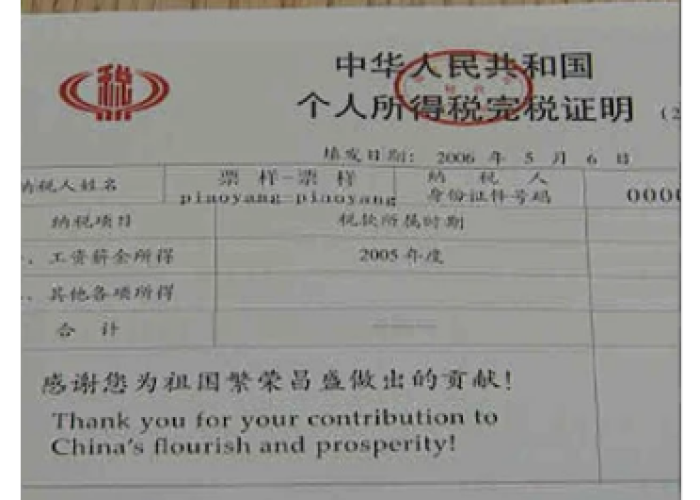 税
中华人民共和国
个人所得税完税证明 (2
填发日期: 2006 年 5 月 6 日
纳税人姓名 票样-票样 纳税人
piaoyang-piaoyang 身份证件号码 0000
纳税项目 税款所属时期
、工资薪金所得 2005 年度
、其他各项所得
合计
感谢您为祖国繁荣昌盛做出的贡献!
Thank you for your contribution to
China's flourish and prosperity!